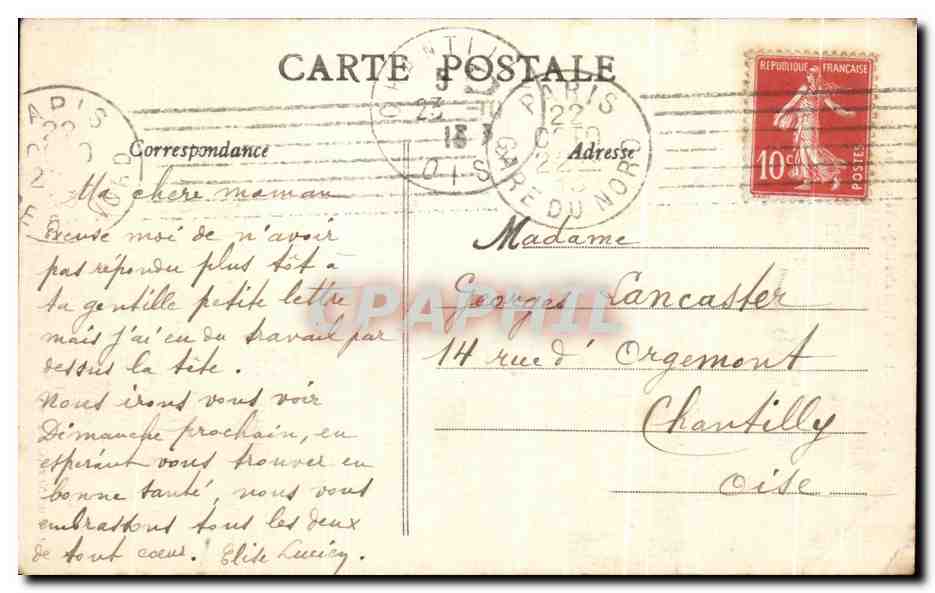 CARTE POSTALE
Correspondance
Adresse
REPUBLIQUE FRANÇAISE
10 c
POSTES
CHANTILLY
5
23 -10
13
OISE
PARIS
22
OCTO
22
GARE DU NORD
PARIS
NORD
Ma chere maman
Excuse moi de n'avoir
pas répondu plus tôt à
ta gentille petite lettre
mais j'ai eu du travail par
dessus la tête.
Nous irons vous voir
Dimanche prochain, en
espérant vous trouver en
bonne santé, nous vous
embrassons tous les deux
de tout coeur. Elise Lucien.
Madame
Georges Lancaster
14 rue d'Orgemont
Chantilly
Oise
CPAPHIL